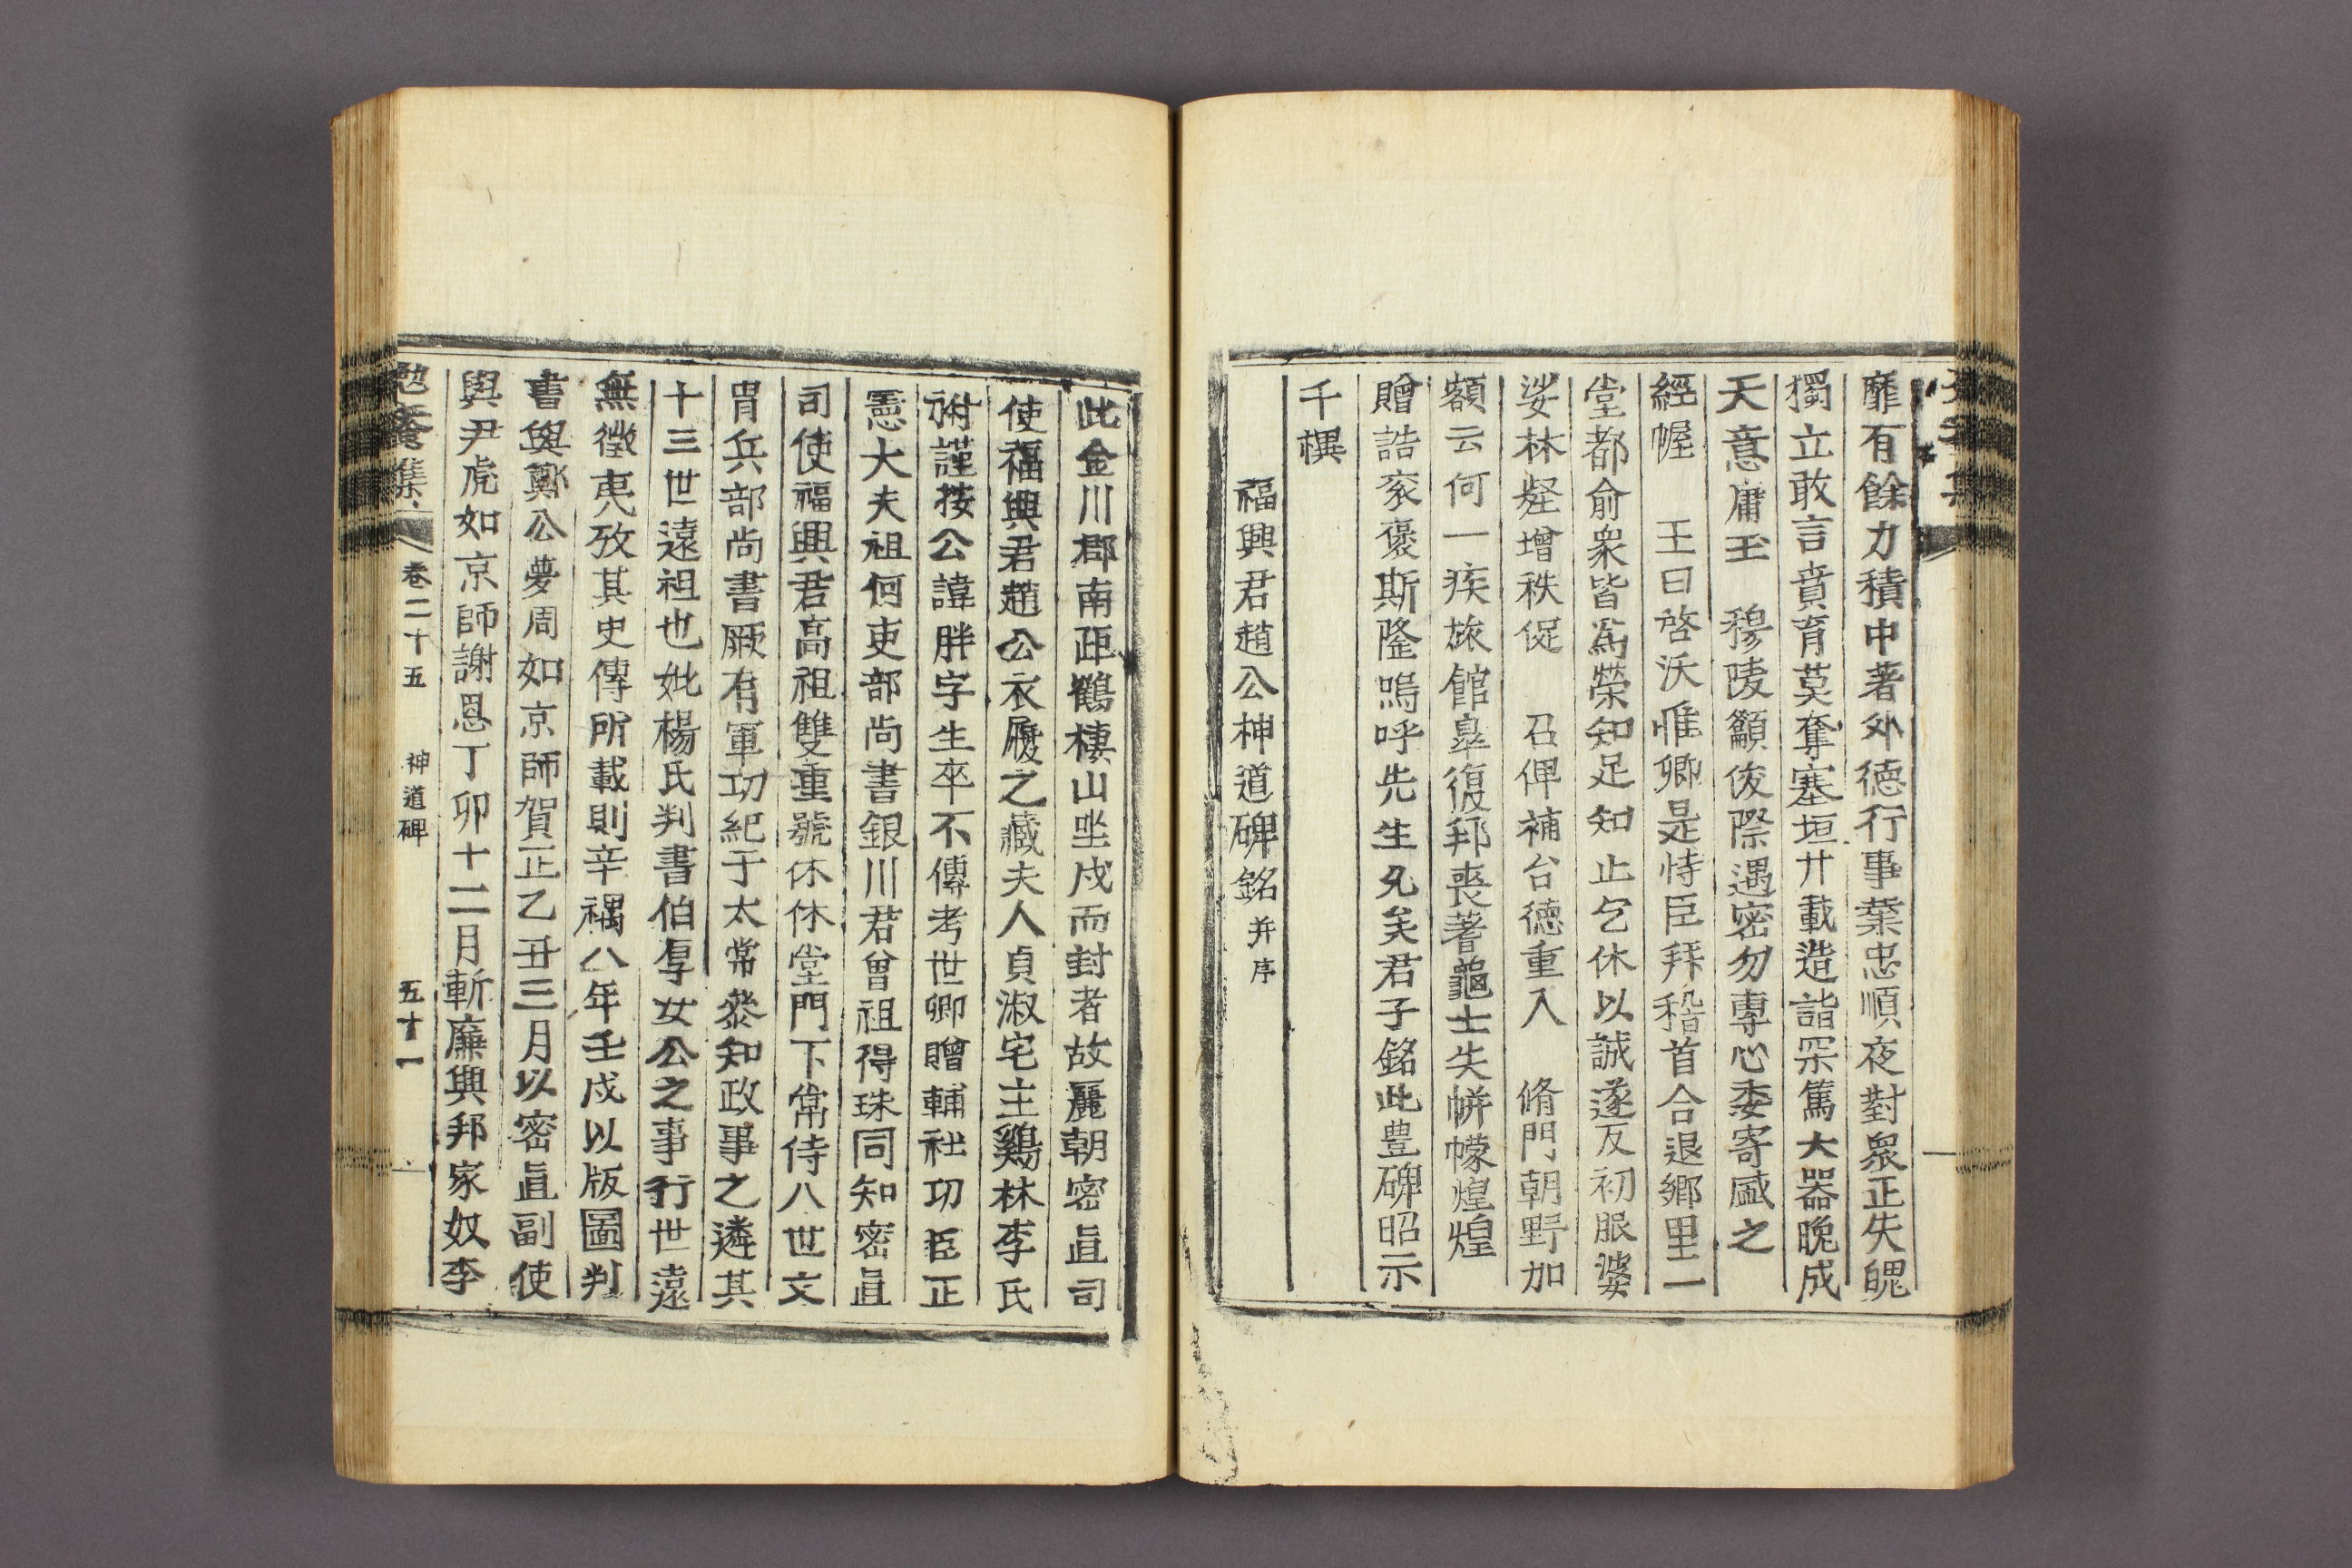 靡有餘力積中著外德行事業忠順夜對衆正失魄
獨立敢言賁育莫奪塞垣廾載造詣罙篤大器晩成
天意庸玉　穆陵籲俊際遇密勿專心委寄盛之
經幄　王曰啓沃惟卿是恃臣拜稽首合退鄕里一
堂都俞衆皆爲榮知足知止乞休以誠遂反初服婆
娑林壑增秩促　召俾補台德重入　脩門朝野加
額云何一疾旅館皐復邦喪蓍龜士失帡幪煌煌
贈誥袞褒斯隆嗚呼先生允矣君子銘此豊碑昭示
千禩
福興君趙公神道碑銘并序
此金川郡南距鶴棲山坐戌而封者故麗朝密直司
使福興君趙公衣履之藏夫人貞淑宅主鷄林李氏
祔謹按公諱胖字生卒不傳考世卿贈輔社功臣正
憲大夫祖何吏部尙書銀川君曾祖得珠同知密直
司使福興君高祖雙重號休休堂門下常侍八世文
胄兵部尙書厥有軍功紀于太常叅知政事之遴其
十三世遠祖也妣楊氏判書伯厚女公之事行世遠
無徵叓攷其史傳所載則辛禑八年壬戌以版圖判
書與鄭公夢周如京師賀正乙丑三月以密直副使
與尹虎如京師謝恩丁卯十二月斬廉興邦家奴李
勉菴集　卷二十五　神道碑　五十一